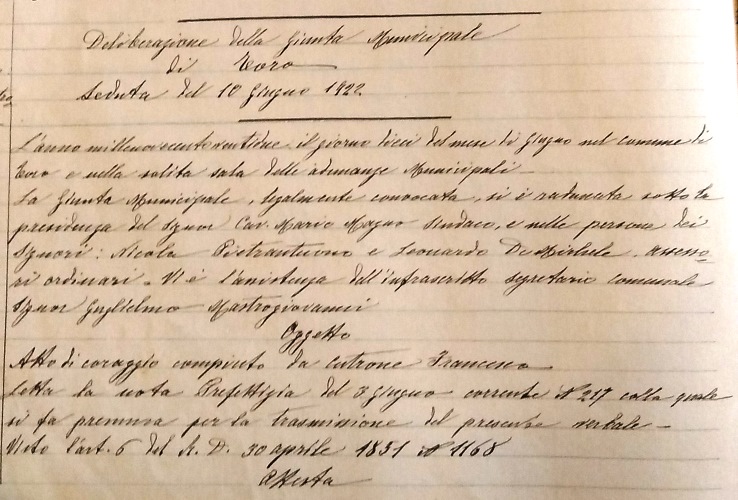 Deliberazione della Giunta Municipale
di Toro
Seduta del 10 Giugno 1922
L'anno millenovecentoventidue il giorno dieci del mese di Giugno nel comune di
Toro e nella solita sala delle adunanze Municipali -
La Giunta Municipale, legalmente convocata, si è radunata sotto la
presidenza del Signor Cav. Mario Magno Sindaco, e nelle persone dei
Signori: Nicola Pietrantuono e Leonardo De Michele, assesso=
ri ordinari - Vi è l'assistenza dell'infrascritto segretario comunale
Signor Guglielmo Mastrogiovanni
Oggetto
Atto di coraggio compiuto da Cutrone Francesco
Letta la nota Prefettizia del 3 giugno corrente N 217 colla quale
si fa premura per la trasmissione del presente verbale -
Visto l'art. 6 del R. D. 30 aprile 1851 N 1168
Attesta